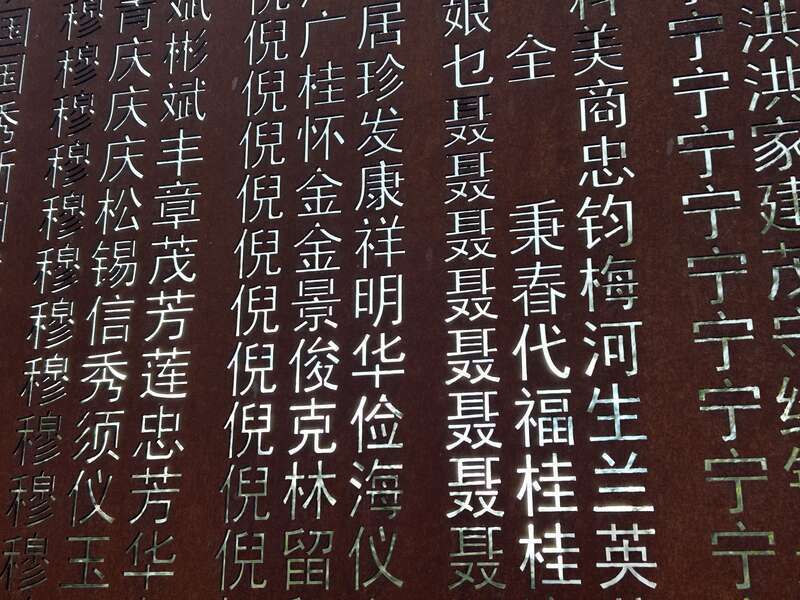 国
国
秀
穆青斌
穆庆彬
穆庆斌
穆庆丰
穆松章
穆锡茂
穆信芳
穆秀莲
穆须忠
穆仪芳
穆玉华
倪广居
倪桂珍
倪怀发
倪金康
倪金祥
倪景明
倪俊华
倪克俭
倪林海
倪留仪
娘
乜全美
聂商
聂忠
聂秉钧
聂春梅
聂代河
聂福生
聂桂兰
聂桂英
宁洪
宁洪
宁家
宁建
宁茂
宁守
宁
宁
宁